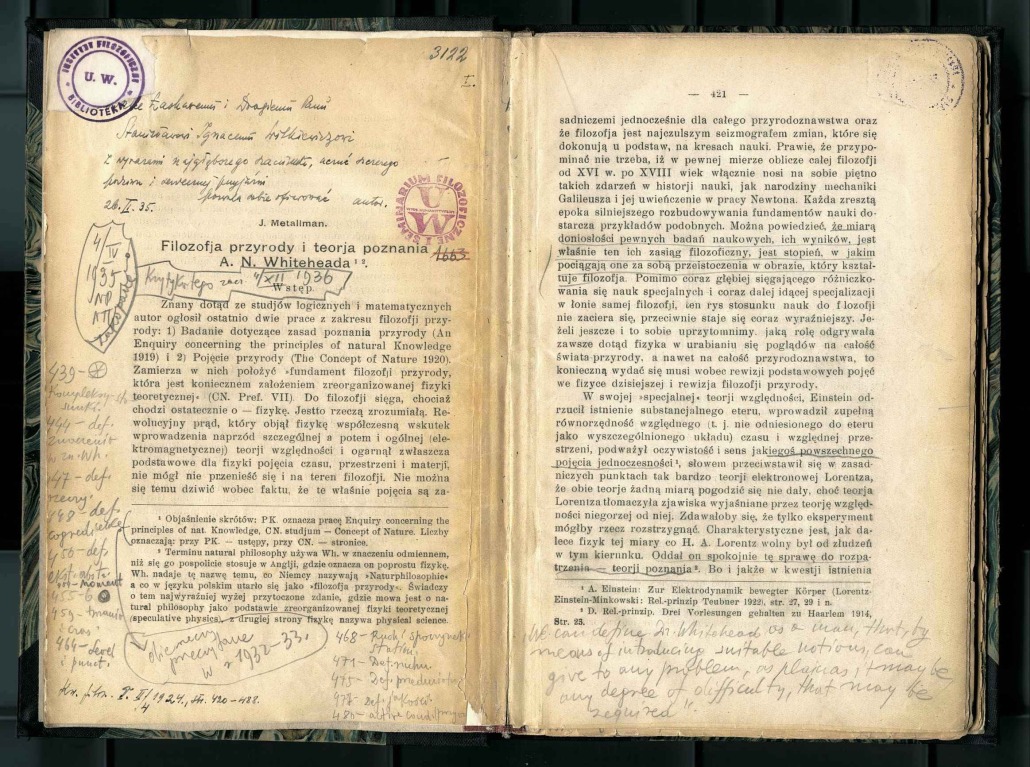 INSTYTUT FILOZOFICZNY
U. W.
BIBLIOTEKA
3122
I.
i Drogiemu Panu
Stanisławowi Ignacemu Witkiewiczowi
z wyrazami najgłębszego szacunku, szczerego
podziwu i serdecznej przyjaźni
pozwala sobie ofiarować autor.
26.II.35.
SEMINARIUM FILOZOFICZNE
UW
J. Metallman.
1663
Filozofja przyrody i teorja poznania
A. N. Whiteheada ¹ ².
4/IV
1935
NP
Krytykę tego zacz. 4/XII 1936
Wstęp.
Znany dotąd ze studjów logicznych i matematycznych
autor ogłosił ostatnio dwie prace z zakresu filozofji przy-
rody: 1) Badanie dotyczące zasad poznania przyrody (An
Enquiry concerning the principles of natural Knowledge
1919) i 2) Pojęcie przyrody (The Concept of Nature 1920).
Zamierza w nich położyć »fundament filozofji przyrody,
która jest koniecznem założeniem zreorganizowanej fizyki
teoretycznej« (CN. Pref. VII). Do filozofji sięga, chociaż
chodzi ostatecznie o — fizykę. Jestto rzeczą zrozumiałą. Re-
wolucyjny prąd, który objął fizykę współczesną wskutek
wprowadzenia naprzód szczególnej a potem i ogólnej (ele-
ktromagnetycznej) teorji względności i ogarnął zwłaszcza
podstawowe dla fizyki pojęcia czasu, przestrzeni i materji,
nie mógł nie przenieść się i na teren filozofji. Nie można
się temu dziwić wobec faktu, że te właśnie pojęcia są za-
439 –
444 – def.
447 – def.
rzeczy.
448 def.
456 – def.
moment
455-6
459 –
czas
464 –
i punkt.
¹ Objaśnienie skrótów: PK. oznacza pracę Enquiry concerning the
principles of nat. Knowledge, CN. studjum — Concept of Nature. Liczby
oznaczają: przy PK. — ustępy, przy CN. — stronice.
² Terminu natural philosophy używa Wh. w znaczeniu odmiennem,
niż się go pospolicie stosuje w Anglji, gdzie oznacza on poprostu fizykę.
Wh. nadaje tę nazwę temu, co Niemcy nazywają »Naturphilosophie«
a co w języku polskim utarło się jako »filozofja przyrody«. Świadczy
o tem najwyraźniej wyżej przytoczone zdanie, gdzie mowa jest o na-
tural philosophy jako podstawie zreorganizowanej fizyki teoretycznej
(speculative physics), z drugiej strony fizykę nazywa physical science.
w r. 1932-33.
468 – Ruch i
471 – Def. ruchu.
475 – Def. przedmiotu
478 – Def. jakości
Kw. filoz. T. II/4 1924, str. 420-488.
— 421 —
sadniczemi jednocześnie dla całego przyrodoznawstwa oraz
że filozofja jest najczulszym seizmografem zmian, które się
dokonują u podstaw, na kresach nauki. Prawie, że przypo-
minać nie trzeba, iż w pewnej mierze oblicze całej filozofji
od XVI w. po XVIII wiek włącznie nosi na sobie piętno
takich zdarzeń w historji nauki, jak narodziny mechaniki
Galileusza i jej uwieńczenie w pracy Newtona. Każda zresztą
epoka silniejszego rozbudowywania fundamentów nauki do-
starcza przykładów podobnych. Można powiedzieć, że miarą
doniosłości pewnych badań naukowych, ich wyników, jest
właśnie ten ich zasiąg filozoficzny, jest stopień, w jakim
pociągają one za sobą przeistoczenia w obrazie, który kształ-
tuje filozofja. Pomimo coraz głębiej sięgającego różniczko-
wania się nauk specjalnych i coraz dalej idącej specjalizacji
w łonie samej filozofji, ten rys stosunku nauk do filozofji
nie zaciera się, przeciwnie staje się coraz wyraźniejszy. Je-
żeli jeszcze i to sobie uprzytomnimy. jaką rolę odgrywała
zawsze dotąd fizyka w urabianiu się poglądów na całość
świata przyrody, a nawet na całość przyrodoznawstwa, to
konieczną wydać się musi wobec rewizji podstawowych pojęć
we fizyce dzisiejszej i rewizja filozofji przyrody.
W swojej »specjalnej« teorji względności, Einstein od-
rzucił istnienie substancjalnego eteru, wprowadził zupełną
równorzędność względnego (t. j. nie odniesionego do eteru
jako wyszczególnionego układu) czasu i względnej prze-
strzeni, podważył oczywistość i sens jakiegoś powszechnego
pojęcia jednoczesności¹, słowem przeciwstawił się w zasad-
niczych punktach tak bardzo teorji elektronowej Lorentza,
że obie teorje żadną miarą pogodzić się nie dały, choć teorja
Lorentza tłomaczyła zjawiska wyjaśniane przez teorję względ-
ności niegorzej od niej. Zdawałoby się, że tylko eksperyment
mógłby rzecz rozstrzygnąć. Charakterystyczne jest, jak da-
lece fizyk tej miary co H. A. Lorentz wolny był od złudzeń
w tym kierunku. Oddał on spokojnie tę sprawę do rozpa-
trzenia — teorji poznania². Bo i jakże w kwestji istnienia
¹ A. Einstein: Zur Elektrodynamik bewegter Körper (Lorentz-
Einstein-Minkowski: Rel.-prinzip Teubner 1922), str. 27, 29 i n.
² D. Rel.-prinzip. Drei Vorlesungen gehalten zu Haarlem 1914,
Str. 23.
"We can define Dr. Whitehead as a man, that, by
means of introducing suitable notions, can
give to any problem, as plain as it may be
any degree of difficulty, that may be
required".